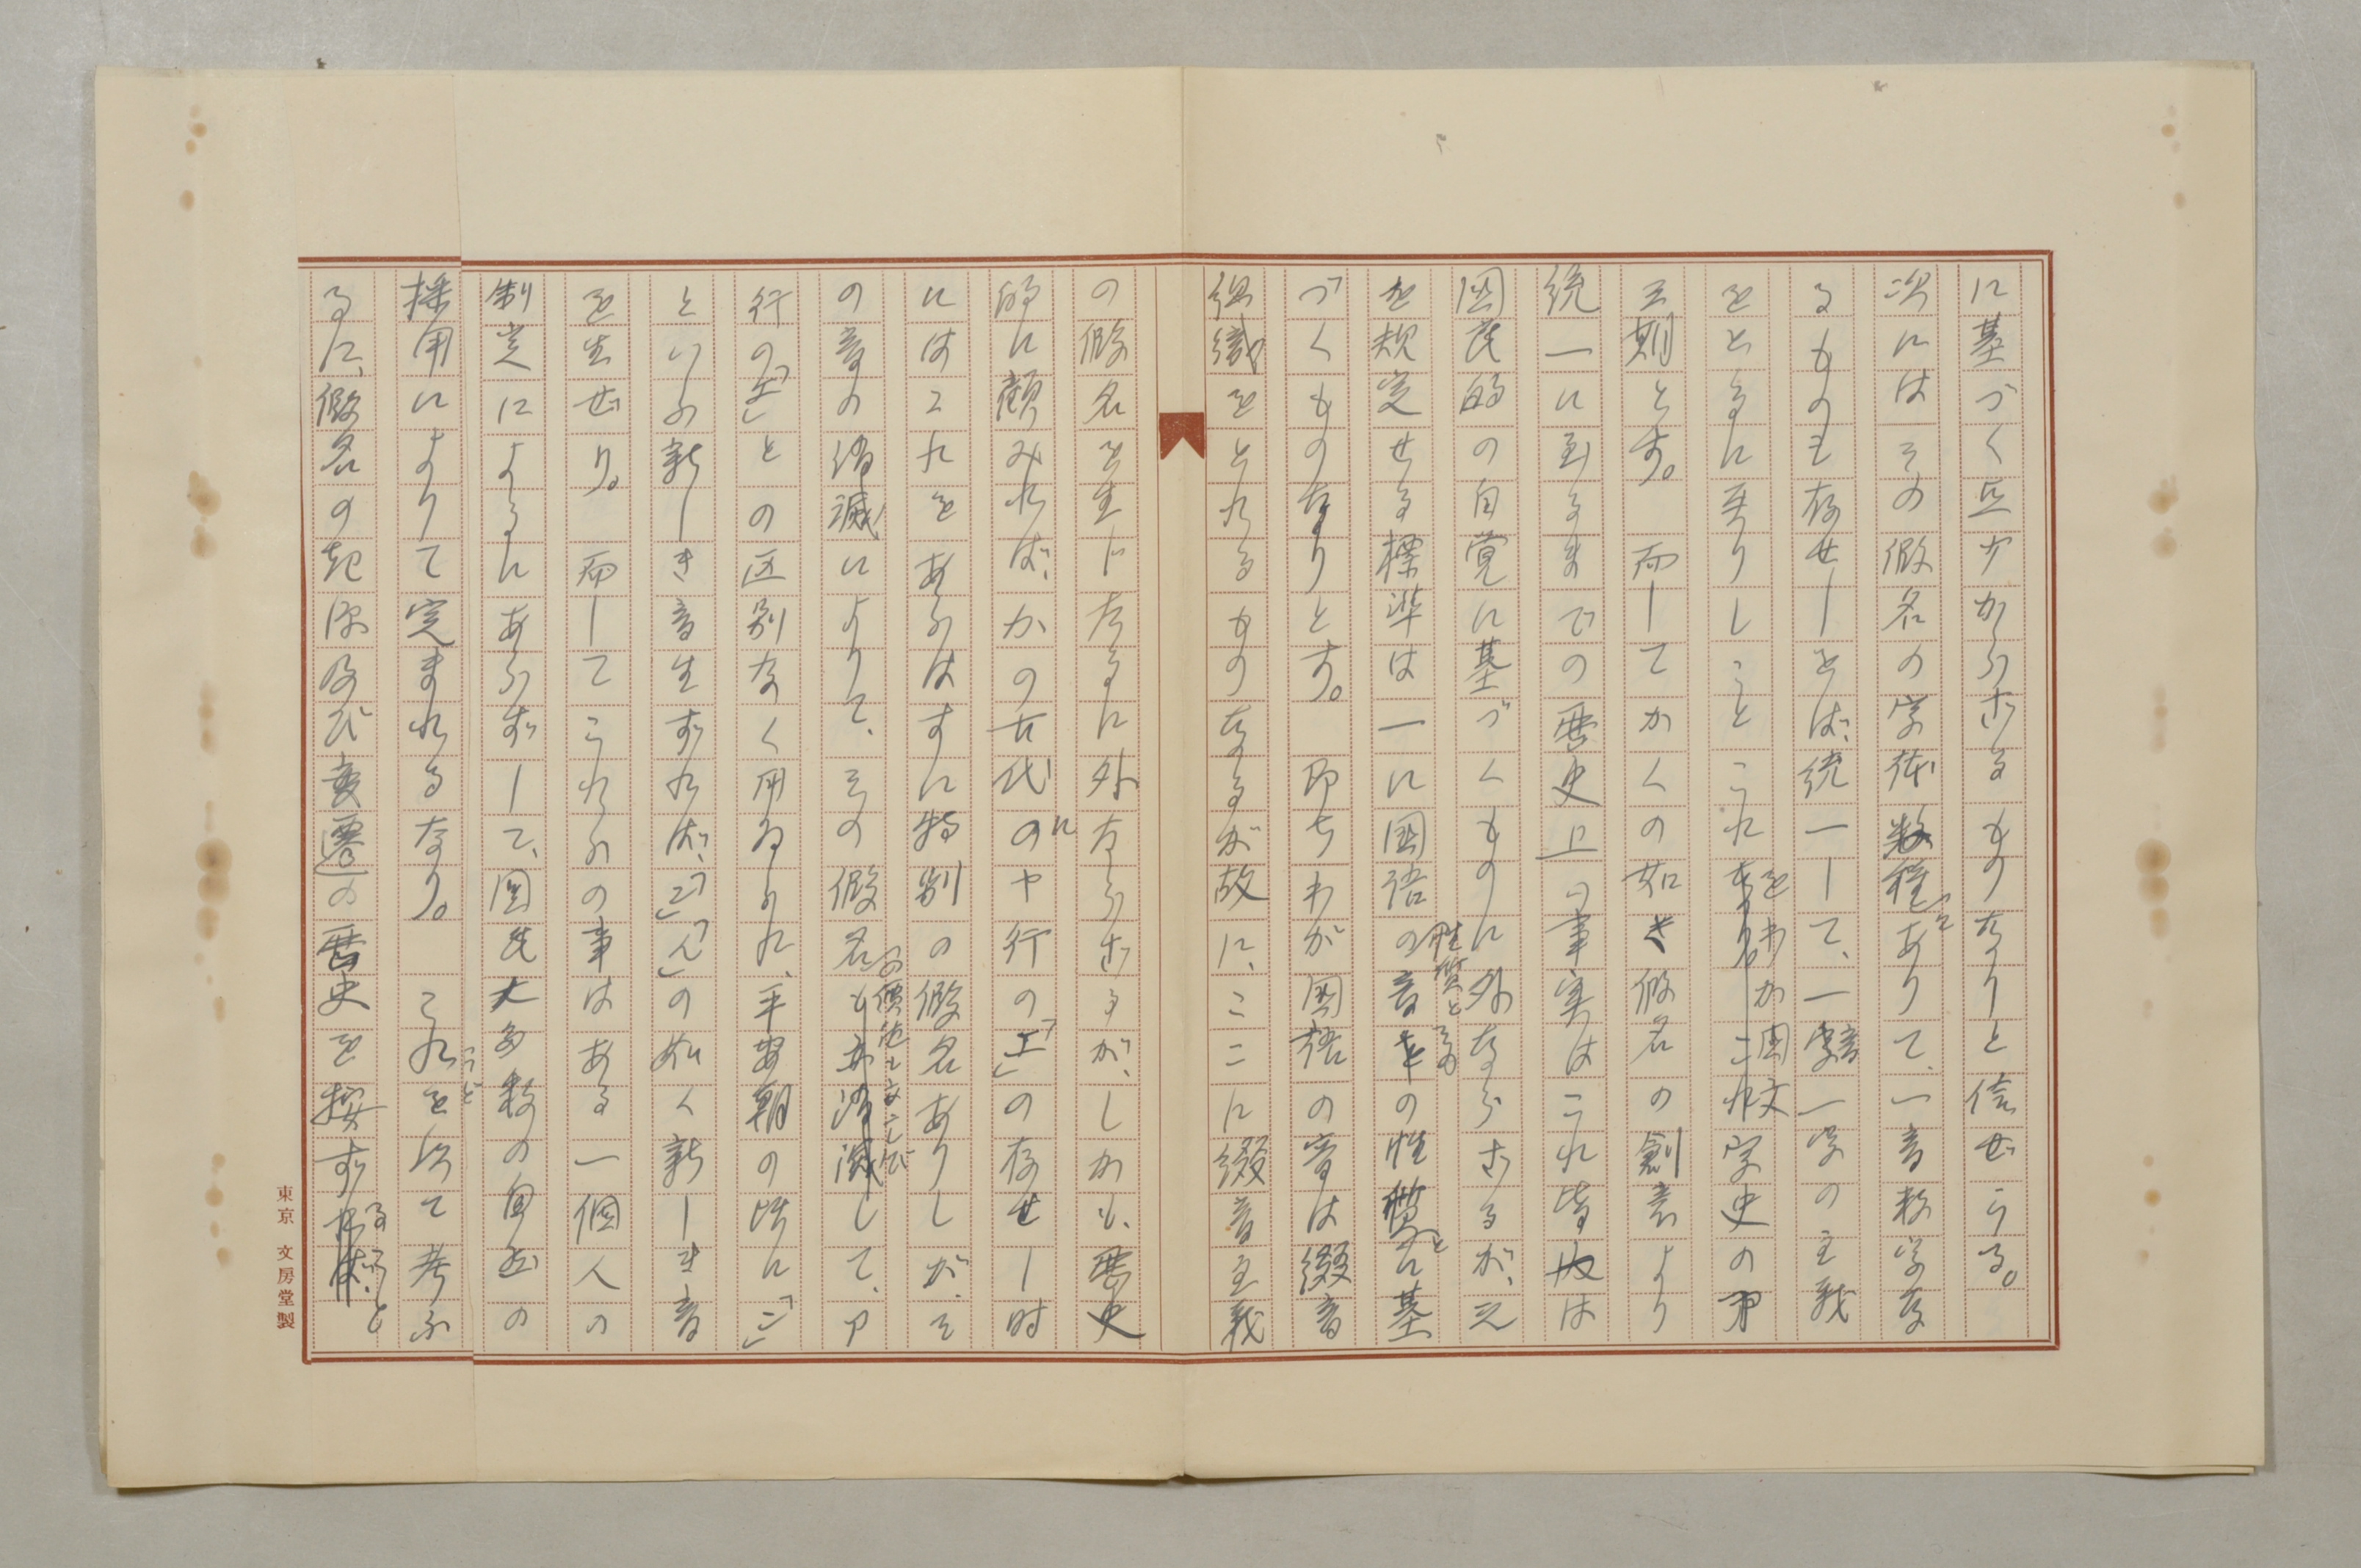 に基づく点少からざるものなりと信ぜらる。
次にはその假名の字体数種ありて、一音数字な
るものも存せしとば、統一して、一音一字の主義
をとるに至りしことこれをわか国文字史の第
三期とす。而してかくの如き假名の創意より
統一に至るまでの歴史上の事実はこれ皆は
国民的の自覚に基づくものに外ならざるが、之
を規定せる標準は一に国語の性質とその音の性質とに基
づくものなりとす。即ちわが国語の音は綴音
組織をとれるものなるが故に、ここに綴音主義
の假名を生じたるに外ならざるが、しかも、歴史
的に顧みれば、かの古代にヤ行の「エ」の存せし時
にはこれをあらはすに特別の假名ありしが、そ
の音の消滅によりて、その假名の價値も亦して、ア
行の「エ」との区別なく用ゐられ、平安朝の時に「ン」
といふ新しき音生ずれば、「ン」「ん」の如く新しき音
を生ぜり。而してこれらの事はある一個人の
制定によるにあらずして、国民大多数の自然の
採用によりて定まれるなり。これを以て考ふ
るに、假名の起源及び変遷の歴史を按ずると
東京 文房堂製